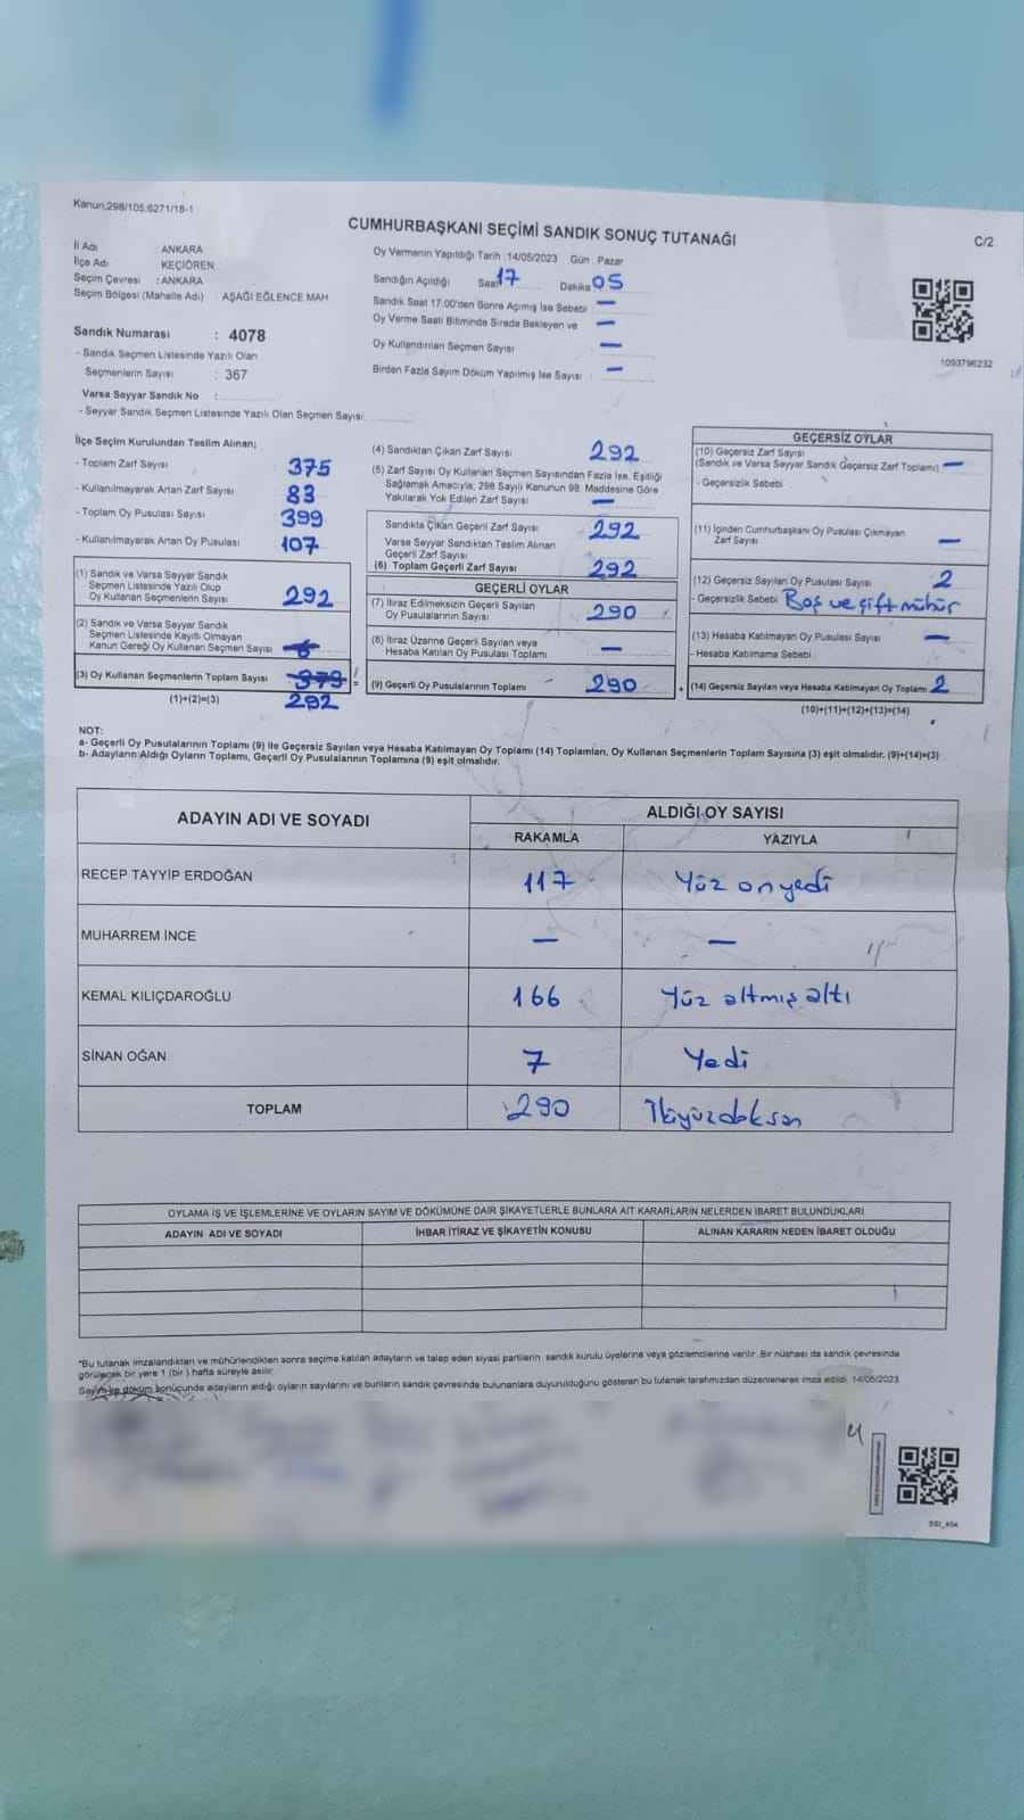 Kanun.298/105,6271/18-1
CUMHURBAŞKANI SEÇİMİ SANDIK SONUÇ TUTANAĞI
C/2
İl Adı : ANKARA
İlçe Adı : KEÇİÖREN
Seçim Çevresi : ANKARA
Seçim Bölgesi (Mahalle Adı) AŞAĞI EĞLENCE MAH
Sandık Numarası : 4078
- Sandık Seçmen Listesinde Yazılı Olan
Seçmenlerin Sayısı : 367
Varsa Seyyar Sandık No :
- Seyyar Sandık Seçmen Listesinde Yazılı Olan Seçmen Sayısı:
Oy Vermenin Yapıldığı Tarih :14/05/2023 Gün : Pazar
Sandığın Açıldığı Saat 17 Dakika 05
Sandık Saat 17.00'den Sonra Açımış İse Sebebi : —
Oy Verme Saati Bitiminde Sırada Bekleyen ve —
Oy Kullandırılan Seçmen Sayısı —
Birden Fazla Sayım Döküm Yapılmış İse Sayısı : —
1093796232
İlçe Seçim Kurulundan Teslim Alınan;
- Toplam Zarf Sayısı 375
- Kullanılmayarak Artan Zarf Sayısı 83
- Toplam Oy Pusulası Sayısı 399
- Kullanılmayarak Artan Oy Pusulası 107
(1) Sandık ve Varsa Seyyar Sandık
Seçmen Listesinde Yazılı Olup
Oy Kullanan Seçmenlerin Sayısı 292
(2) Sandık ve Varsa Seyyar Sandık
Seçmen Listesinde Kayıtlı Olmayan
Kanun Gereği Oy Kullanan Seçmen Sayısı
(3) Oy Kullanan Seçmenlerin Toplam Sayısı
(1)+(2)=(3) 292
(4) Sandıktan Çıkan Zarf Sayısı 292
(5) Zarf Sayısı Oy Kullanan Seçmen Sayısından Fazla İse, Eşitliği
Sağlamak Amacıyla; 298 Sayılı Kanunun 98. Maddesine Göre
Yakılarak Yok Edilen Zarf Sayısı —
Sandıkta Çıkan Geçerli Zarf Sayısı 292
Varsa Seyyar Sandıktan Teslim Alınan
Geçerli Zarf Sayısı
(6) Toplam Geçerli Zarf Sayısı 292
GEÇERLİ OYLAR
(7) İtiraz Edilmeksizin Geçerli Sayılan
Oy Pusulalarının Sayısı 290
(8) İtiraz Üzerine Geçerli Sayılan veya
Hesaba Katılan Oy Pusulası Toplamı —
(9) Geçerli Oy Pusulalarının Toplamı 290
GEÇERSİZ OYLAR
(10) Geçersiz Zarf Sayısı
(Sandık ve Varsa Seyyar Sandık Geçersiz Zarf Toplamı) —
- Geçersizlik Sebebi
(11) İçinden Cumhurbaşkanı Oy Pusulası Çıkmayan
Zarf Sayısı —
(12) Geçersiz Sayılan Oy Pusulası Sayısı 2
- Geçersizlik Sebebi Boş ve çift mühür
(13) Hesaba Katılmayan Oy Pusulası Sayısı —
- Hesaba Katılmama Sebebi
(14) Geçersiz Sayılan veya Hesaba Katılmayan Oy Toplamı 2
(10)+(11)+(12)+(13)=(14)
NOT:
a- Geçerli Oy Pusulalarının Toplamı (9) ile Geçersiz Sayılan veya Hesaba Katılmayan Oy Toplamı (14) Toplamları, Oy Kullanan Seçmenlerin Toplam Sayısına (3) eşit olmalıdır. (9)+(14)=(3)
b- Adayların Aldığı Oyların Toplamı, Geçerli Oy Pusulalarının Toplamına (9) eşit olmalıdır.
ADAYIN ADI VE SOYADI ALDIĞI OY SAYISI
RAKAMLA YAZIYLA
RECEP TAYYİP ERDOĞAN 117 Yüz onyedi
MUHARREM İNCE — —
KEMAL KILIÇDAROĞLU 166 Yüz altmış altı
SİNAN OĞAN 7 Yedi
TOPLAM 290 İkiyüzdoksan
OYLAMA İŞ VE İŞLEMLERİNE VE OYLARIN SAYIM VE DÖKÜMÜNE DAİR ŞİKAYETLERLE BUNLARA AİT KARARLARIN NELERDEN İBARET BULUNDUKLARI
ADAYIN ADI VE SOYADI İHBAR İTİRAZ VE ŞİKAYETİN KONUSU ALINAN KARARIN NEDEN İBARET OLDUĞU
*Bu tutanak imzalandıktan ve mühürlendikten sonra seçime katılan adayların ve talep eden siyasi partilerin sandık kurulu üyelerine veya gözlemcilerine verilir. Bir nüshası da sandık çevresinde
görülecek bir yere 1 (bir) hafta süreyle asılır.
Sayım ve döküm sonuçunda adayların aldığı oyların sayılarını ve bunların sandık çevresinde bulunanlara duyurulduğunu gösteren bu tutanak tarafımızdan düzenlenerek imza edildi. 14/05/2023